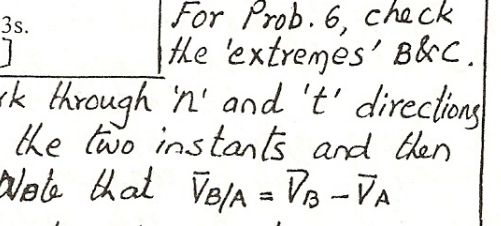 3s.
]
For Prob. 6, check
the 'extremes' B&C.
rk through 'n' and 't' directions
the two instants and then
Note that V̄B/A = V̄B − V̄A